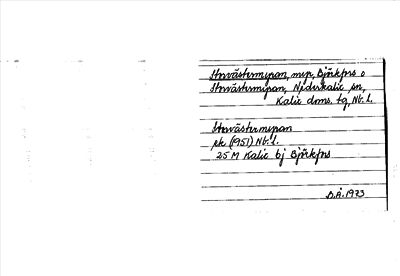 Storvästermyran, myr, Björkfors o
Storvästermyran, Nederkalix sn,
Kalix doms. tg, Nb. l.
Storvästermyran
ek (1951) Nb. l.
25 M Kalix bj Björkfors
D.Å. 1973